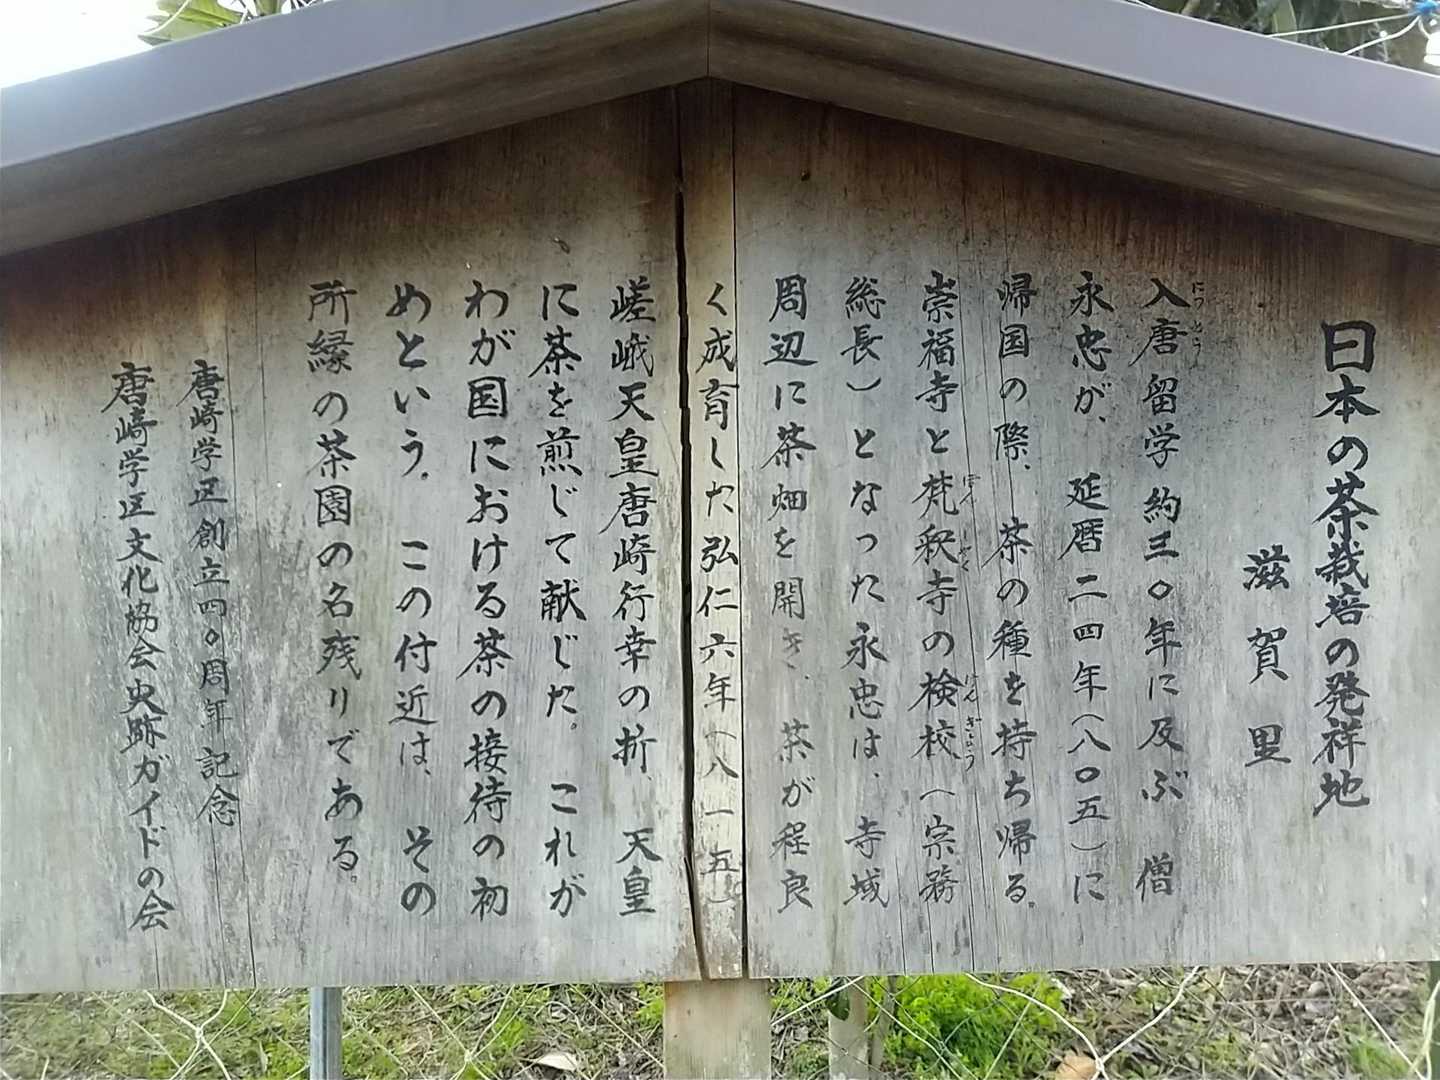 日本の茶栽培の発祥地
滋賀里
入唐留学約三〇年に及ぶ 僧
にっとう
永忠が、延暦二四年(八〇五)に
帰国の際、茶の種を持ち帰る。
崇福寺と梵釈寺の検校(宗務
ぼんしゃく
けんぎょう
総長)となった永忠は、寺域
周辺に茶畑を開き、茶が程良
く成育した弘仁六年(八一五)
嵯峨天皇唐崎行幸の折、天皇
に茶を煎じて献じた。これが
わが国における茶の接待の初
めという。この付近は、その
所縁の茶園の名残りである。
唐崎学区創立四〇周年記念
唐崎学区文化協会史跡ガイドの会